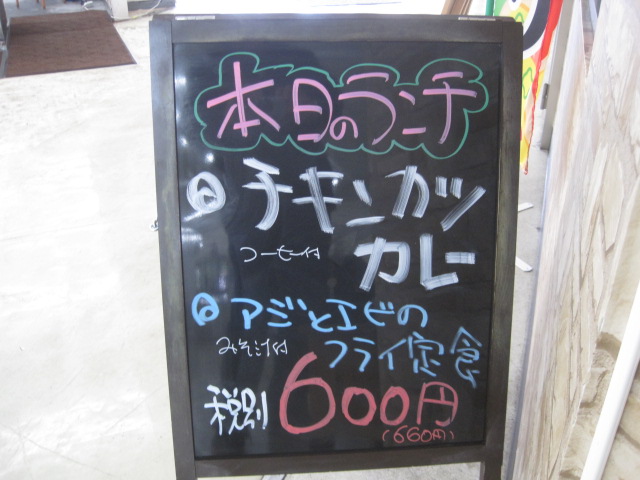 本日のランチ
Ⓐ チキンカツ
カレー
Ⓑ アジとエビの
みそ汁付
フライ定食
税別 600円
(660円)